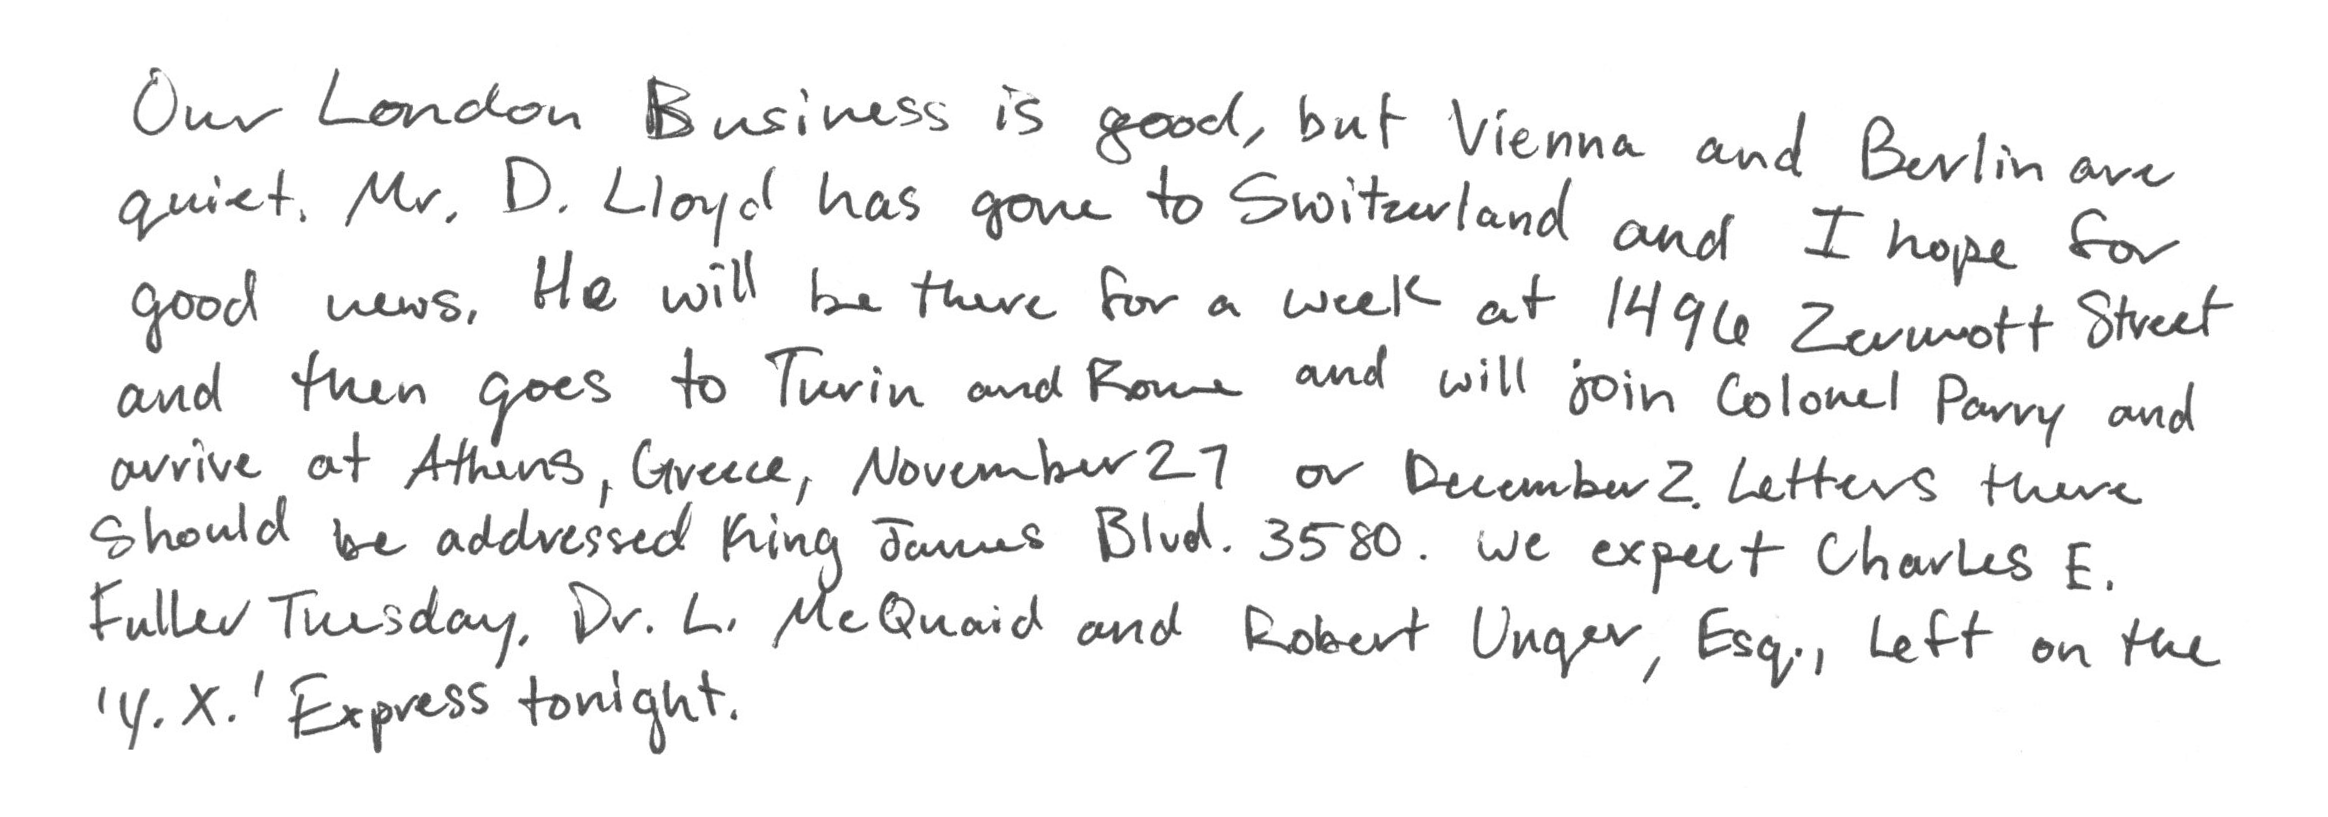 Our London Business is good, but Vienna and Berlin are
quiet. Mr. D. Lloyd has gone to Switzerland and I hope for
good news. He will be there for a week at 1496 Zermott Street
and then goes to Turin and Rome and will join Colonel Parry and
arrive at Athens, Greece, November 27 or December 2. Letters there
should be addressed King James Blvd. 3580. We expect Charles E.
Fuller Tuesday. Dr. L. McQuaid and Robert Unger, Esq., left on the
'Y.X.' Express tonight.